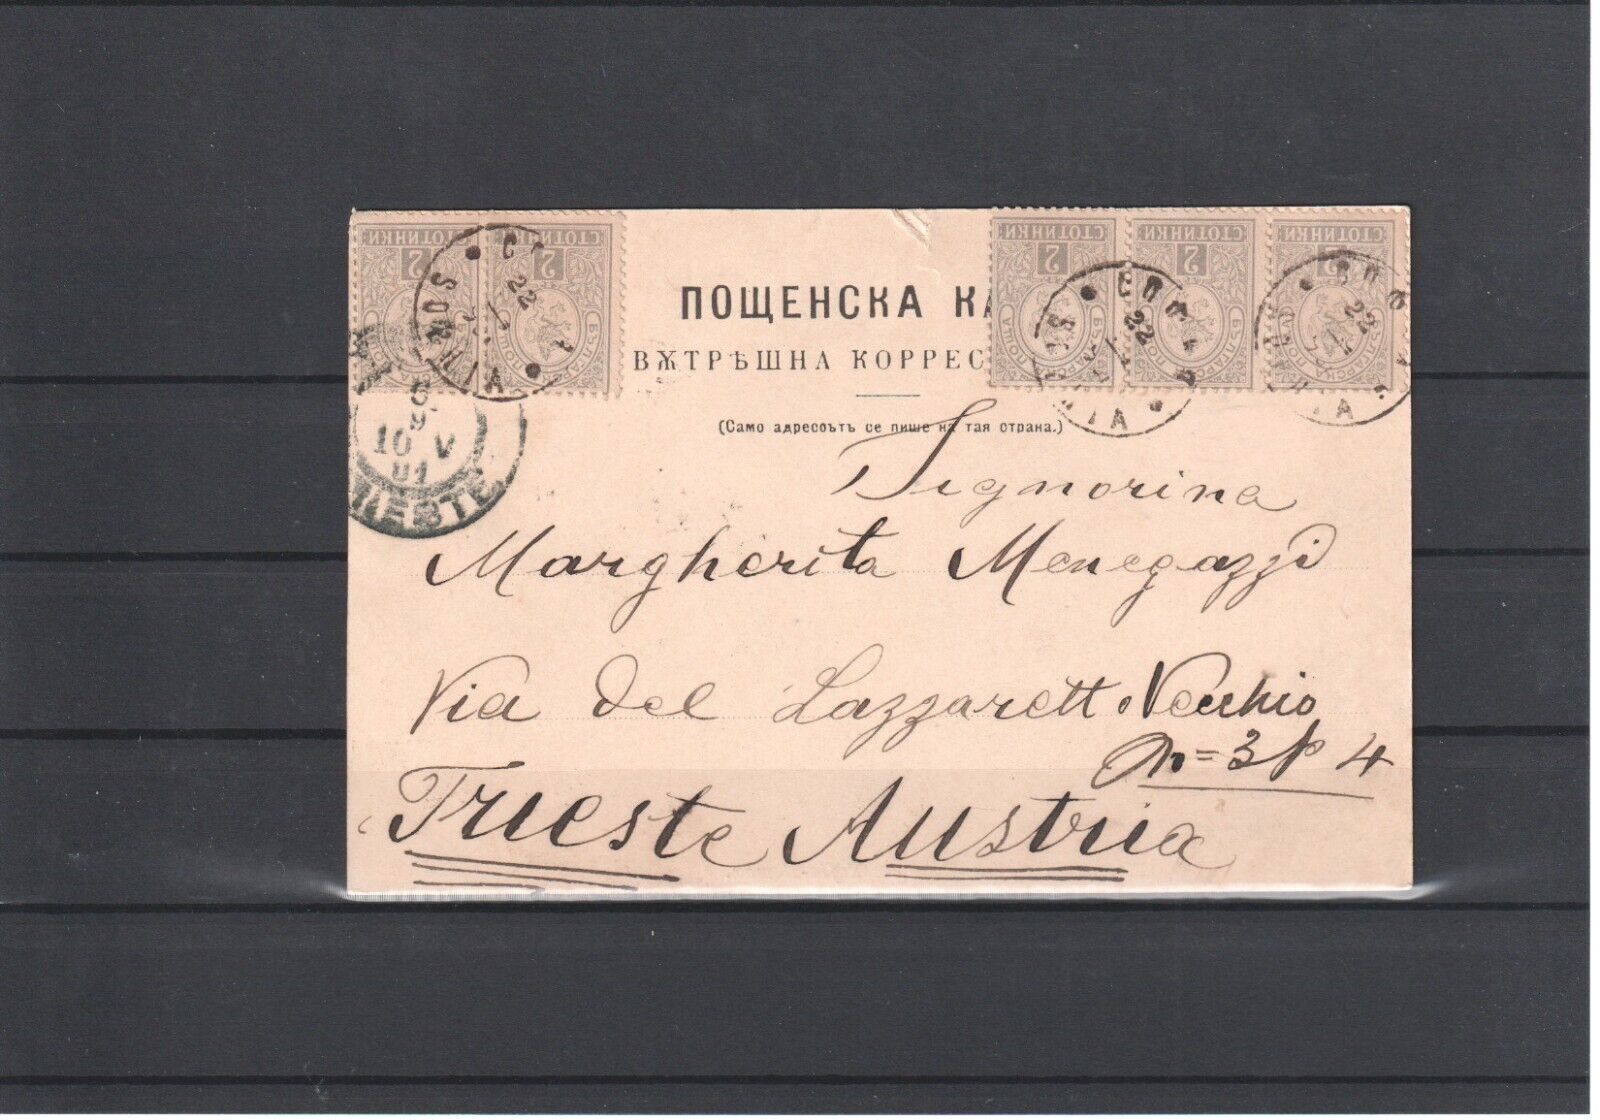 СТОТИНКИ СТОТИНКИ СТОТИНКИ СТОТИНКИ СТОТИНКИ
2 2 2 2 2
SOPHIA
22
22
22
ПОЩЕНСКА КА
ВѪТРѢШНА КОРРЕС
(Само адрессътъ се пише на тая страна.)
10 V
Signorina
Margherita Menegazzi
Via del Lazzarett Vecchio
n=3 p 4
Trieste Austria